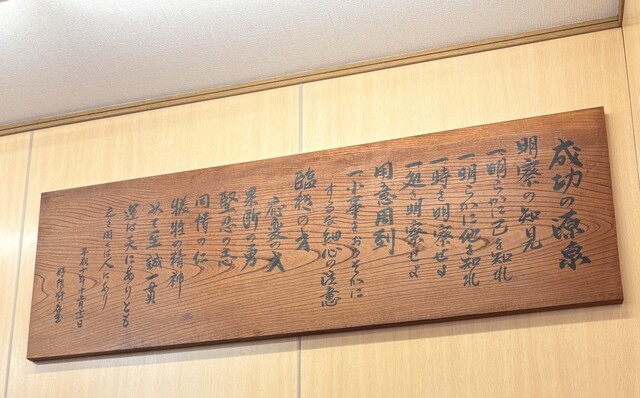 成功の源泉
明察の知見
一明らかに己を知れ
一明らかに他を知れ
一時を明察せよ
一処を明察せよ
用意周到
一小事をおろそかに
せざる細心の注意
臨機の才
応変の才
果断の勇
堅忍の志
同情の仁
犠牲の精神
以て至誠一貫
運は天にありとも
之を開くは人にあり
平成十年十二月十二日